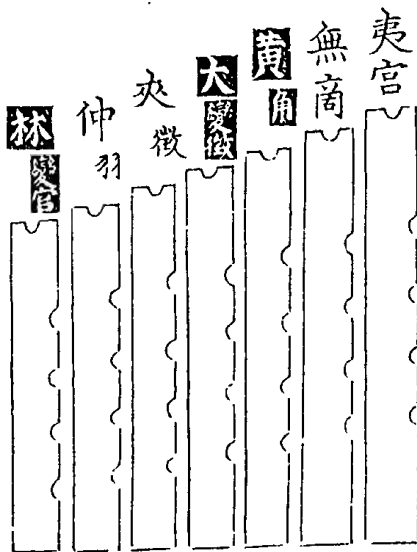 夷宮
無商
黄角
大變徵
夾徵
仲羽
林變宮